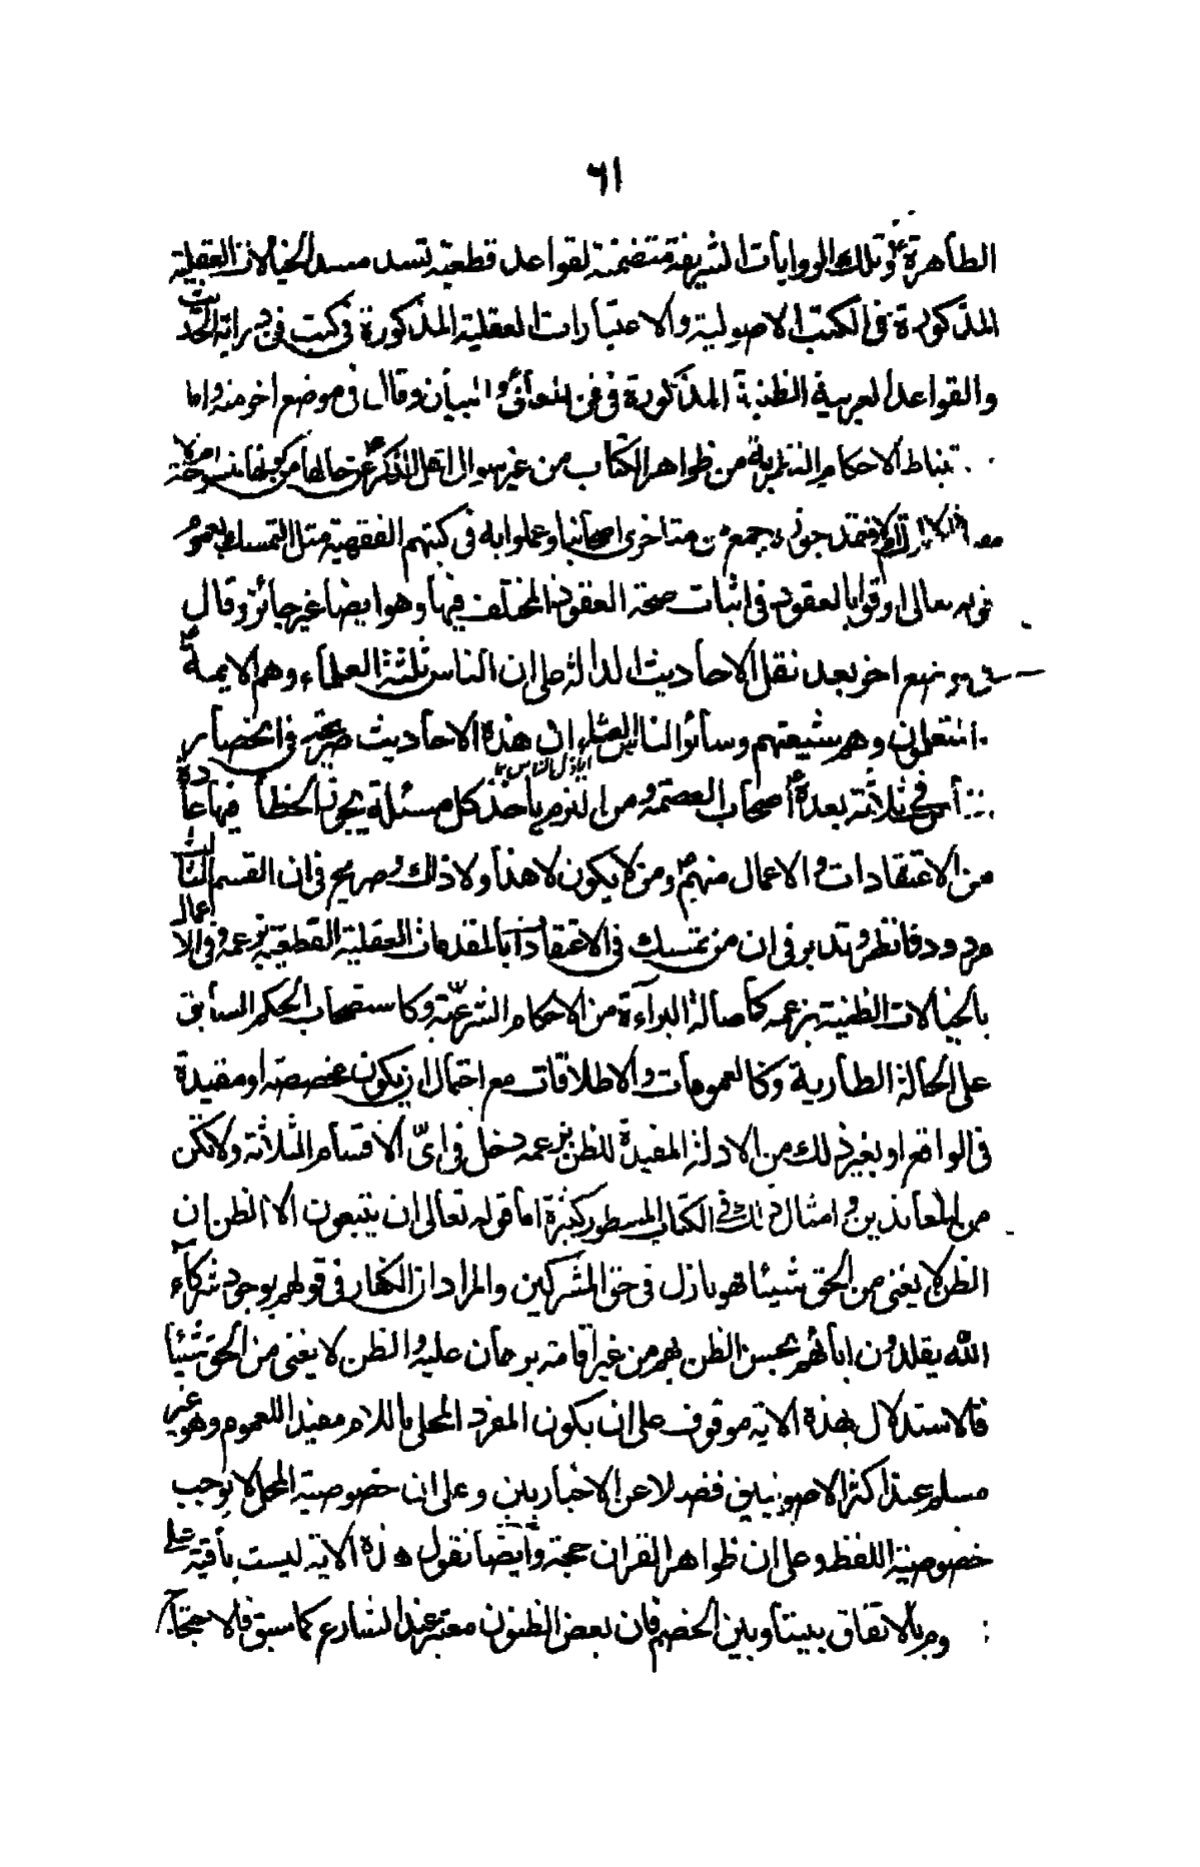 ٦١
الطاهرة ع وتلك الروايات الشريفة متضمنة لقواعد قطعية تسد مسد الخيالات العقلية
المذكورة في الكتب الاصولية والاعتبارات العقلية المذكورة في كتب فن دراية الحديث
والقواعد العربية الظنية المذكورة في فن المعاني والبيان وقال في موضع اخر منه واما
تنباط الاحكام النظرية من ظواهر الكتاب من غير سوال اهل الذكر ع عن حالها من كونها منسوخة ام لا
فقد جوزه جمع من متاخرى اصحابنا وعملوا به في كتبهم الفقهية مثل التمسك بعموم
قوله تعالى اوفوا بالعقود في اثبات صحة العقود المختلف فيها وهو ايضا غير جائز وقال
في موضع اخر بعد نقل الاحاديث الدالة على ان الناس ثلثة العلماء وهم الايمة ع
المتعلمون وهم شيعتهم وسائر الناس الغثاء ان هذه الاحاديث صريحة في انحصار
الناس في ثلاثة بعده ص اصحاب العصمة ومن التزم باخذ كل مسئلة يجوز الخطأ فيها عادة
من الاعتقادات والاعمال منهم ع ومن لا يكون لا هذا ولا ذاك وصريح في ان القسم الثالث
مردود فانظر وتدبر في ان من تمسك في الاعتقادات بالمقدمات العقلية القطعية بزعمه وفي الاعمال
بالخيالات الظنية بزعمه كاصالة البراءة من الاحكام الشرعية وكاستصحاب الحكم السابق
على الحالة الطارية وكالعمومات والاطلاقات مع احتمال ان يكون مخصصة او مقيدة
في الواقع او بغير ذلك من الادلة المفيدة للظن بزعمه دخل في اى الاقسام الثلاثة ولا تكن
من المعاندين وامثال ذلك في الكتاب المسطور كثيرة اما قوله تعالى ان يتبعون الا الظن ان
الظن لا يغنى من الحق شيئا فهو نازل في حق المشركين والمراد ان الكفار في قولهم بوجود شركاء
الله يقلدون ابائهم بحسن الظن بهم من غير اقامة برهان عليه والظن لا يغنى من الحق شيئا
فالاستدلال بهذه الاية موقوف على ان يكون المفرد المحلى باللام مفيدا للعموم وهو غير
مسلم عند اكثر الاصوليين فضلا عن الاخباريين وعلى ان خصوصية المحل لا توجب
خصوصية اللفظ وعلى ان ظواهر القران حجة وايضا نقول هذه الاية ليست باقية على
بالاتفاق بيننا وبين الخصم فان بعض الظنون معتبر عند الشارع كما سبق فالاحتجاج